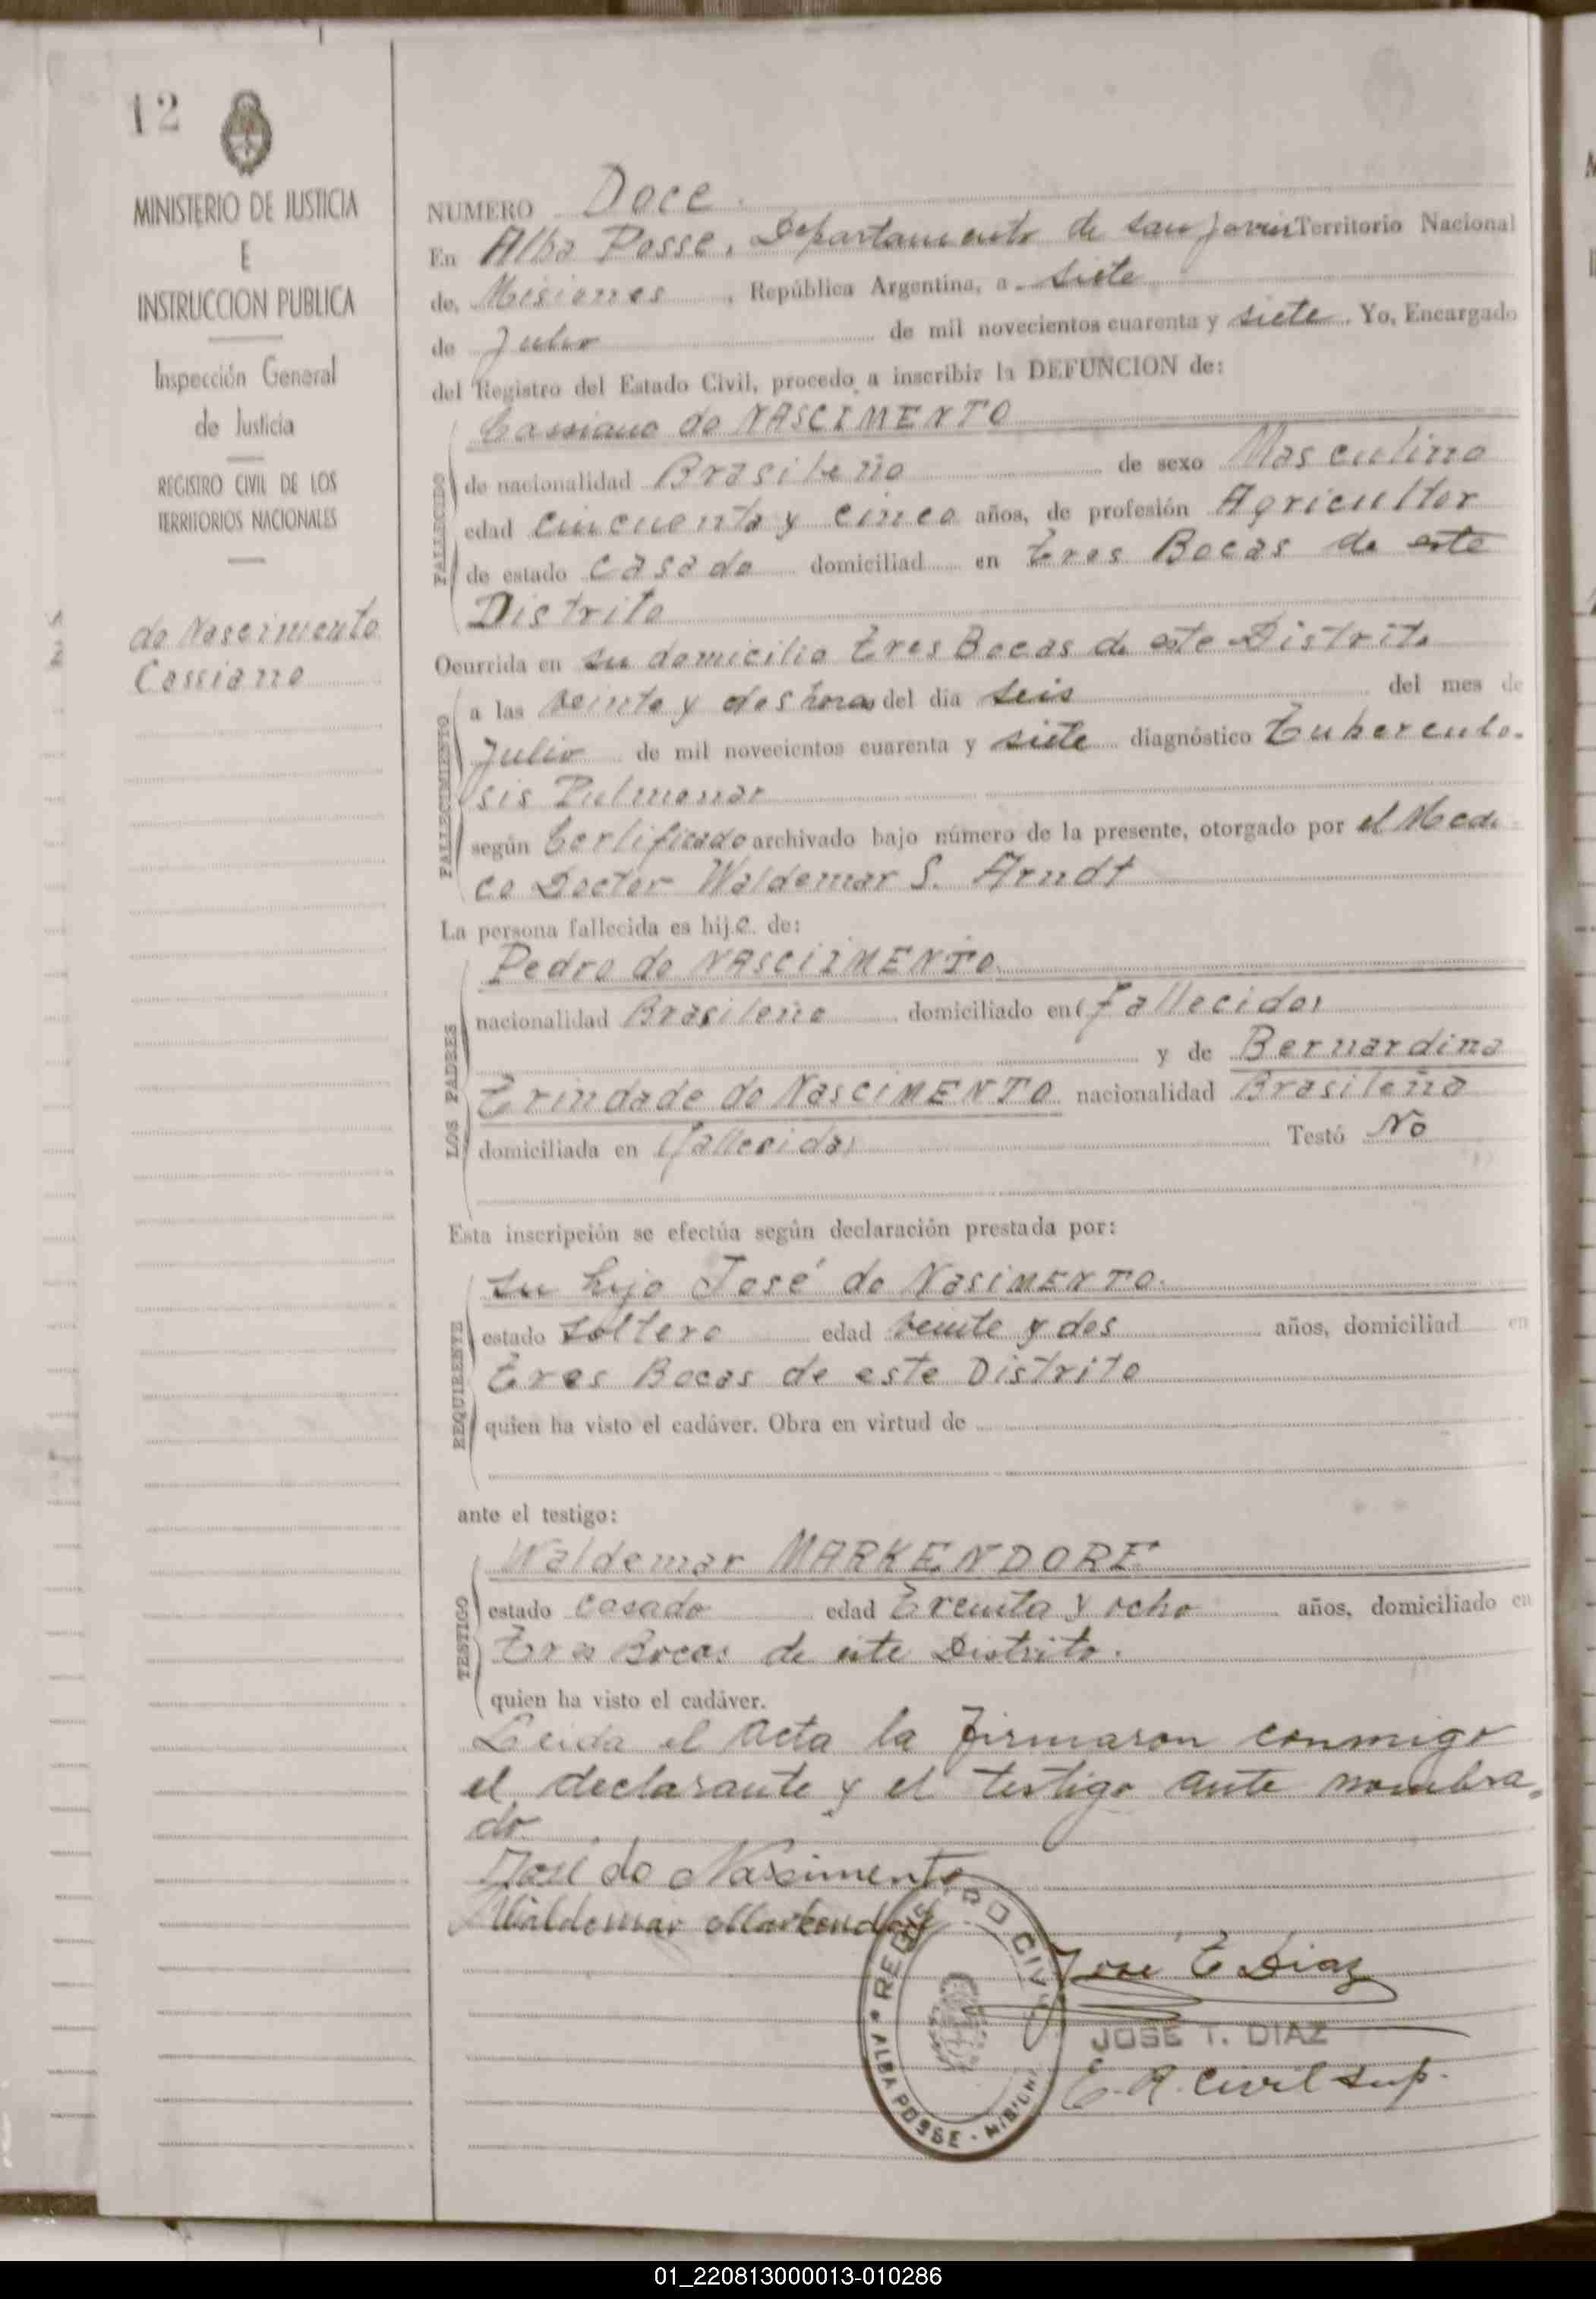 12
MINISTERIO DE JUSTICIA
E
INSTRUCCION PUBLICA
Inspección General
de Justicia
REGISTRO CIVIL DE LOS
TERRITORIOS NACIONALES
do Nascimento
Cassiano
NUMERO Doce.
En Alba Posse, Departamento de San Javier Territorio Nacional
de, Misiones, República Argentina, a siete
de Julio de mil novecientos cuarenta y siete. Yo, Encargado
del Registro del Estado Civil, procedo a inscribir la DEFUNCION de:
Cassiano do NASCIMENTO
FALLECIDO
de nacionalidad Brasileño de sexo Masculino
edad Cincuenta y cinco años, de profesión Agricultor
de estado casado domiciliad en Tres Bocas de este
Distrito
Ocurrida en su domicilio Tres Bocas de este Distrito
FALLECIMIENTO
a las veinte y dos horas del día seis del mes de
Julio de mil novecientos cuarenta y siete diagnóstico Tuberculo-
sis Pulmonar
según Certificado archivado bajo número de la presente, otorgado por el Medi-
co Doctor Waldemar S. Arndt
La persona fallecida es hijo de:
LOS PADRES
Pedro do NASCIIMENTO
nacionalidad Brasileño domiciliado en (fallecido)
y de Bernardina
Trindade do NasciMENTO nacionalidad Brasileña
domiciliada en (fallecida) Testó No
Esta inscripción se efectúa según declaración prestada por:
REQUIRENTE
su hijo José do NasiMENTO.
estado soltero edad veinte y dos años, domiciliad en
Tres Bocas de este Distrito
quien ha visto el cadáver. Obra en virtud de
ante el testigo:
TESTIGO
Waldemar MARKENDORF
estado casado edad Treinta y ocho años, domiciliado en
Tres Bocas de este Distrito.
quien ha visto el cadáver.
Leida el acta la firmaron conmigo
el declarante y el testigo ante nombra-
do
José do Nascimento
Waldemar Markendorf
REGISTRO CIVIL
ALBA POSSE - MISIONES
José T Diaz
JOSE T. DIAZ
E. R. Civil sup.
01_220813000013-010286